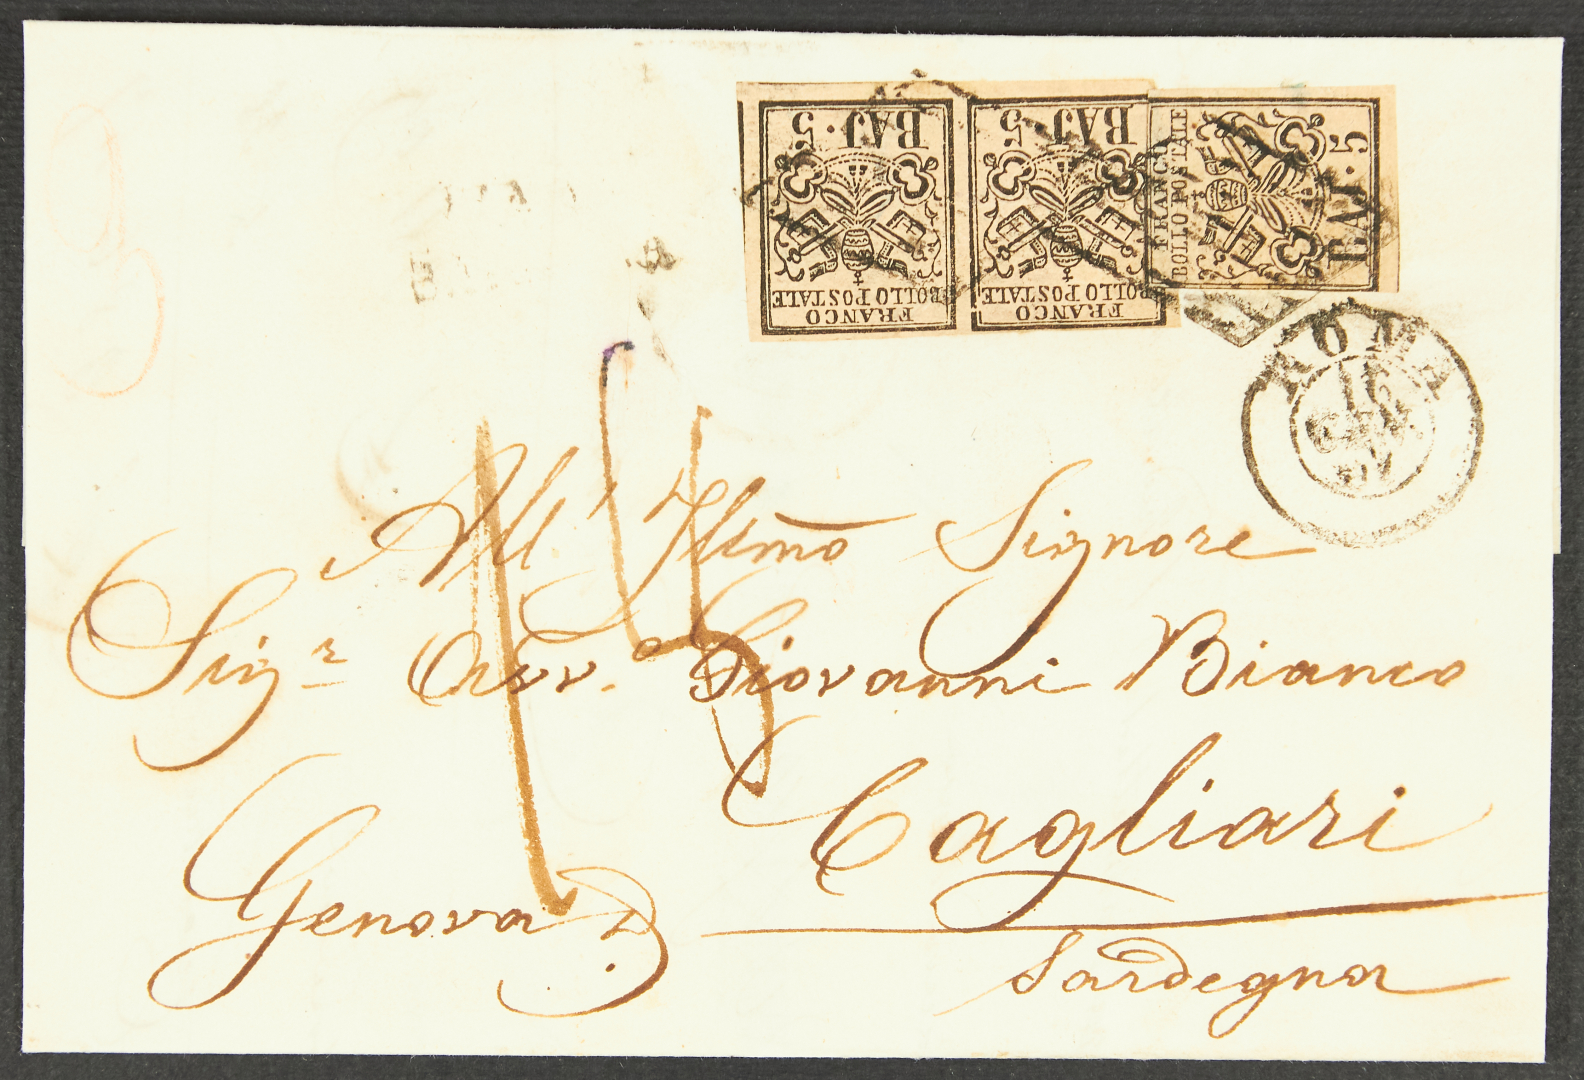 BAJ · 5
FRANCO
BOLLO POSTALE
BAJ 5
FRANCO
BOLLO POSTALE
BAJ · 5
FRANCO
BOLLO POSTALE
ROMA
16
All' Illmo Signore
Sigr Avv. Giovanni Bianco
Cagliari
Genova
Sardegna